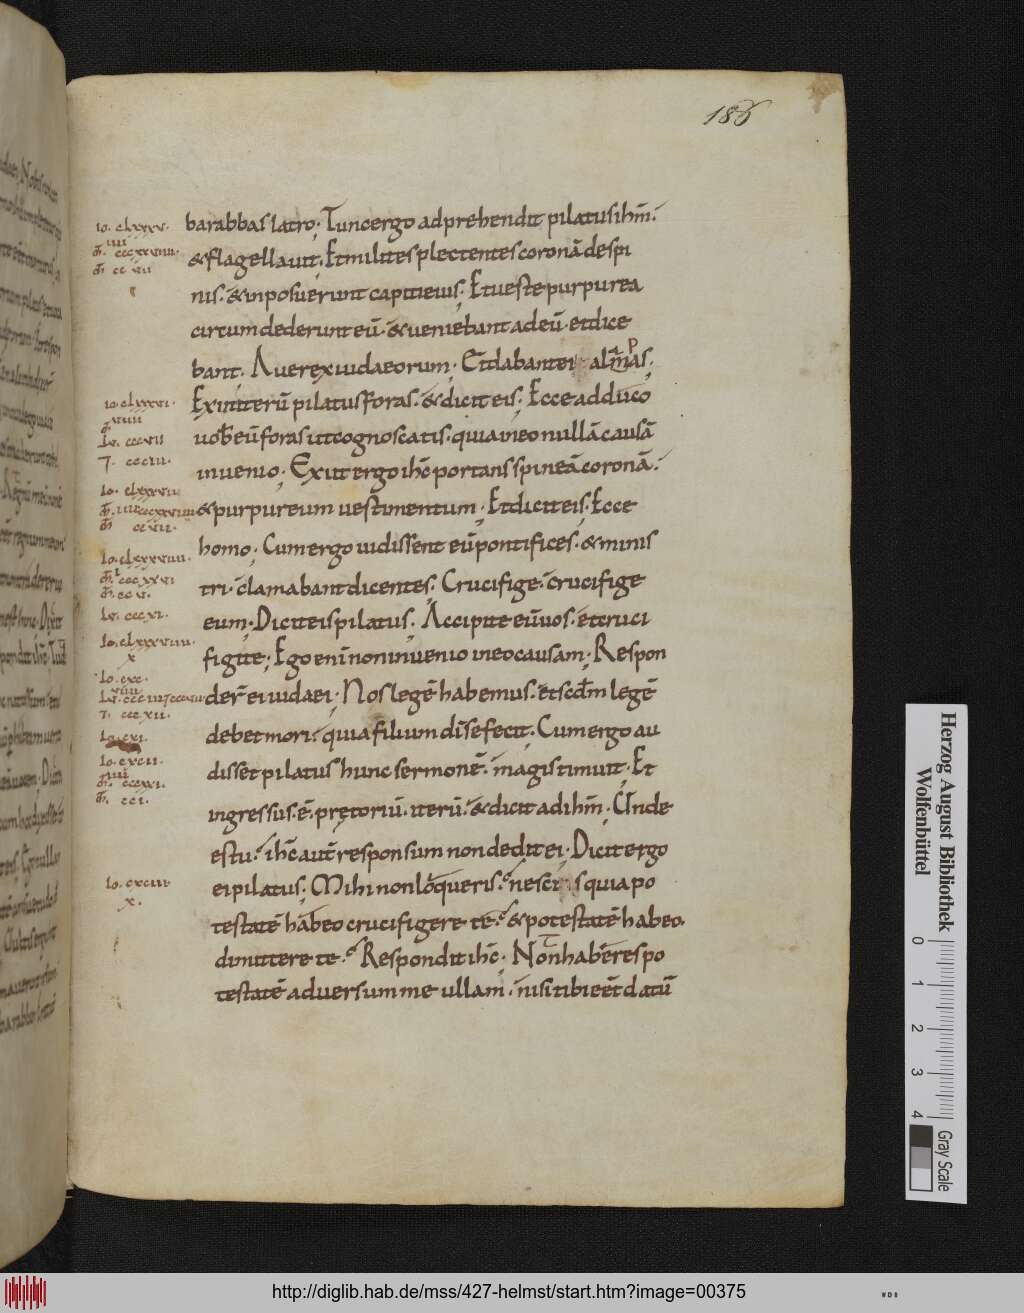 186
barabbas latro. Tunc ergo adprehendit pilatus ihm̄.
& flagellauit. Et milites plectentes coronā de spi
nis. & inposuerunt capiti eius. Et ueste purpurea
circumdederunt eū. & ueniebant ad eū. et dice
bant. Aue rex iudaeorum. Et dabant ei
Exiit iterū pilatus foras. & dicit eis. Ecce adduco
uob eū foras ut cognoscatis. quia in eo nullā causā
inuenio. Exiit ergo ihc̄ portans spineā coronā.
& purpureum uestimentum. Et dicit eis. Ecce
homo. Cum ergo uidissent eū pontifices. & minis
tri. clamabant dicentes. Crucifige. crucifige
eum. Dicit eis pilatus. Accipite eū uos. et cruci
figite. Ego enī non inuenio in eo causam. Respon
der̄ ei iudaei. Nos legē habemus. et scd̄m legē
debet mori. quia filium dī se fecit. Cum ergo au
disset pilatus hunc sermonē. magis timuit. Et
ingressus. ē. pretoriū. iterū. & dicit ad ihm̄. Unde
es tu. ihc̄ aut̄ responsum non dedit ei. Dicit ergo
ei pilatus. Mihi non loqueris. nescis quia po
testatē habeo crucifigere te. & potestatē habeo.
dimittere te. Respondit ihc̄. Non haberes po
testatē aduersum me ullam. nisi tibi eēt datū
Io. clxxxv.
Io. clxxxvi.
Io. cxc.
Io. cxcii.
Io. cxciii
x.
Herzog August Bibliothek
Wolfenbüttel
0 1 2 3 4
Gray Scale
http://diglib.hab.de/mss/427-helmst/start.htm?image=00375